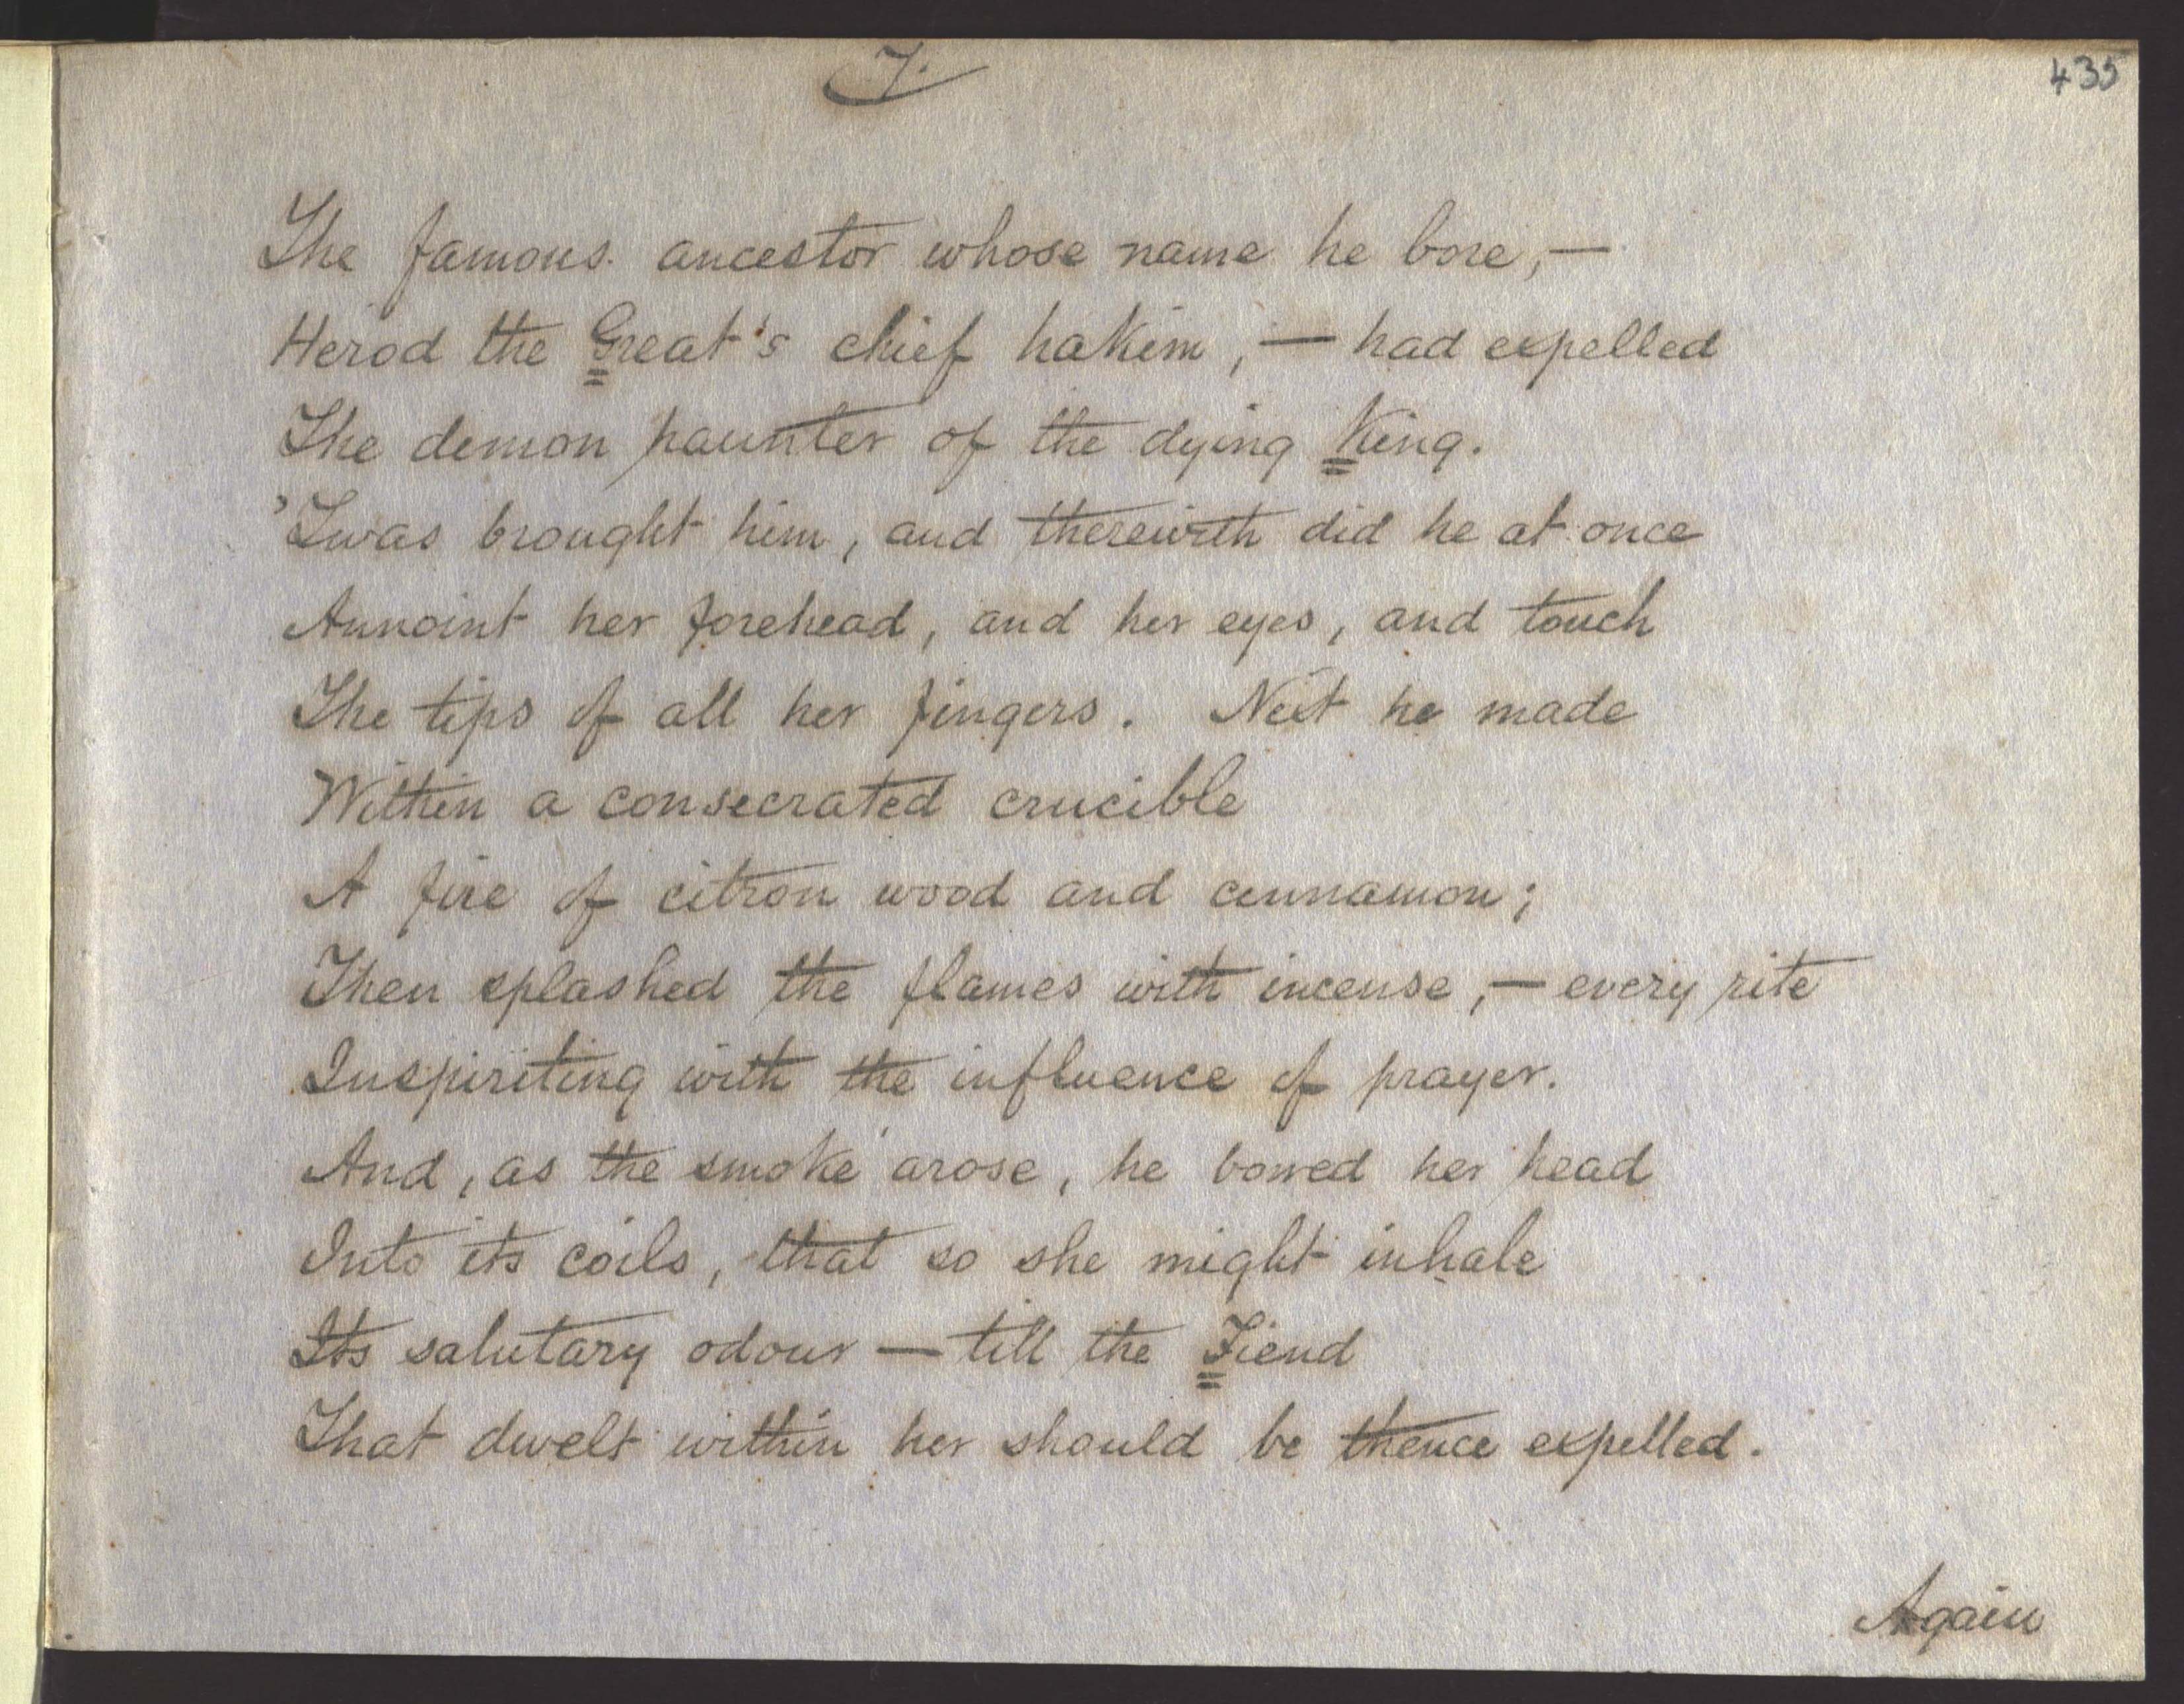 7.
435
The famous ancestor whose name he bore, —
Herod the Great's chief hakim, — had expelled
The demon haunter of the dying King.
'Twas brought him, and therewith did he at once
Annoint her forehead, and her eyes, and touch
The tips of all her fingers. Next he made
Within a consecrated crucible
A fire of citron wood and cinnamon;
Then splashed the flames with incense, — every rite
Inspiriting with the influence of prayer.
And, as the smoke arose, he bowed her head
Into its coils, that so she might inhale
Its salutary odour — till the Fiend
That dwelt within her should be thence expelled.
Again